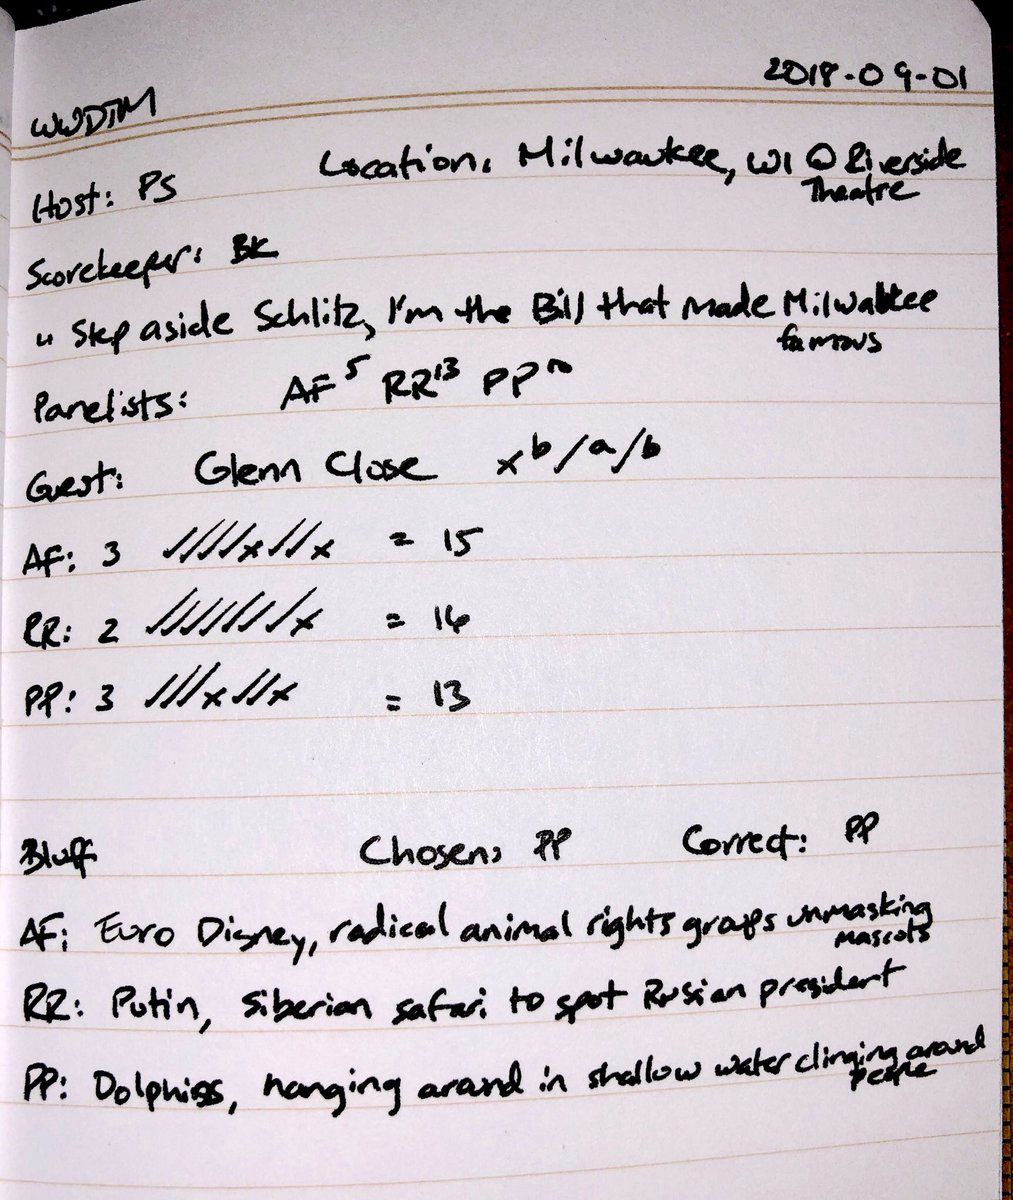 WWDTM 2018-09-01
Host: PS Location: Milwaukee, WI @ Riverside Theatre
Scorekeeper: BK
" Step aside Schlitz, I'm the Bill that made Milwaukee famous
Panelists: AF 5 RR 13 PP
Guest: Glenn Close x b / a / b
AF: 3 ////x//x = 15
RR: 2 ///////x = 16
PP: 3 ///x//x = 13
Bluff Chosen: PP Correct: PP
AF: Euro Disney, radical animal rights groups unmasking mascots
RR: Putin, Siberian safari to spot Russian president
PP: Dolphins, hanging around in shallow water clinging around people